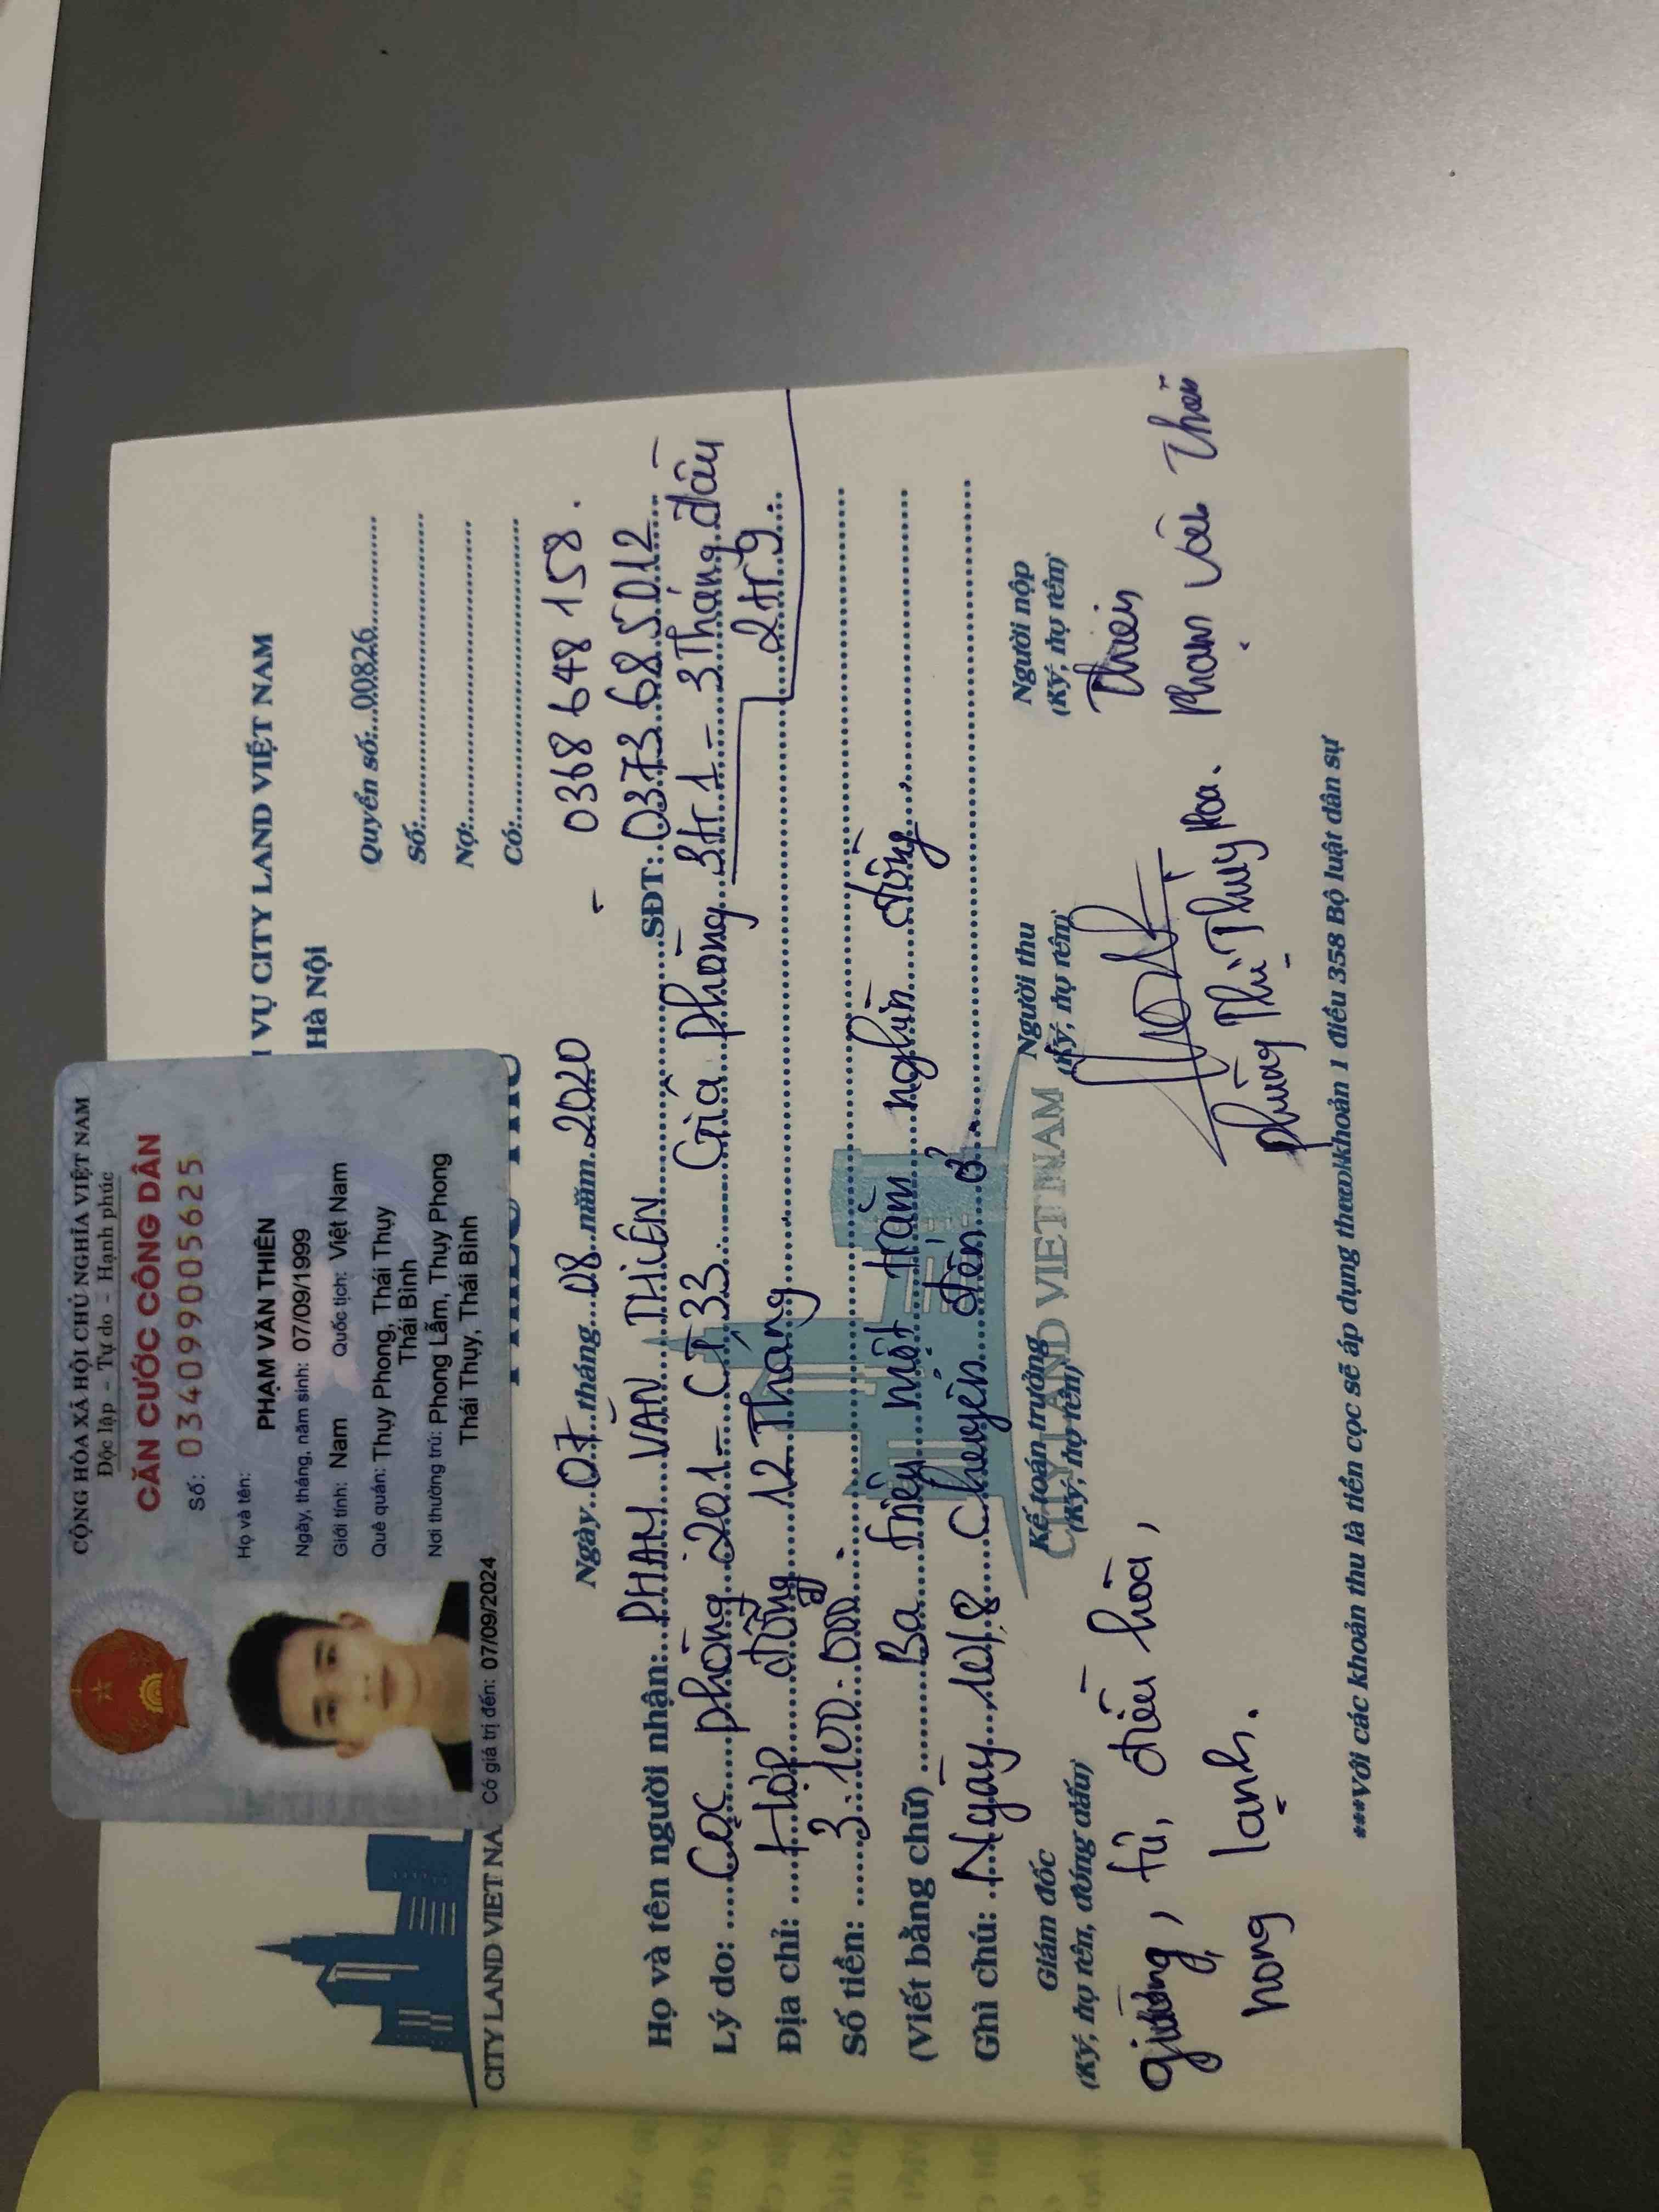 CỘNG HÒA XÃ HỘI CHỦ NGHĨA VIỆT NAM
Độc lập - Tự do - Hạnh phúc
CĂN CƯỚC CÔNG DÂN
Số: 034099005625
Họ và tên:
PHẠM VĂN THIÊN
Ngày, tháng, năm sinh: 07/09/1999
Giới tính: Nam Quốc tịch: Việt Nam
Quê quán: Thụy Phong, Thái Thụy
Thái Bình
Nơi thường trú: Phong Lẫm, Thụy Phong
Thái Thụy, Thái Bình
Có giá trị đến: 07/09/2024
VỤ CITY LAND VIỆT NAM
Hà Nội
CITY LAND VIET NA
Quyển số:...00826
Số:
Nợ:
Có:
Ngày 07 tháng 08 năm 2020
0368 648 158.
Họ và tên người nhận: PHẠM VĂN THIÊN SĐT: 0373 685012
Lý do: Cọc phòng 201 - CT33 Giá phòng 3tr1 - 3 Tháng đầu
2tr9.
Địa chỉ: Hợp đồng 12 Tháng
Số tiền: 3.100.000
(Viết bằng chữ) Ba triệu một trăm nghìn đồng
Ghi chú: Ngày 10/8 chuyển đến ở
CITY LAND VIET NAM
Giám đốc
(Ký, họ tên, đóng dấu)
Kế toán trưởng
(Ký, họ tên)
Người thu
(Ký, họ tên)
Người nộp
(Ký, họ tên)
giường, tủ, điều hòa,
nong lạnh.
Thiên
Phạm Văn Thiên
Phùng Thị Thúy Hoa.
***Với các khoản thu là tiền cọc sẽ áp dụng theo khoản 1 điều 358 Bộ luật dân sự